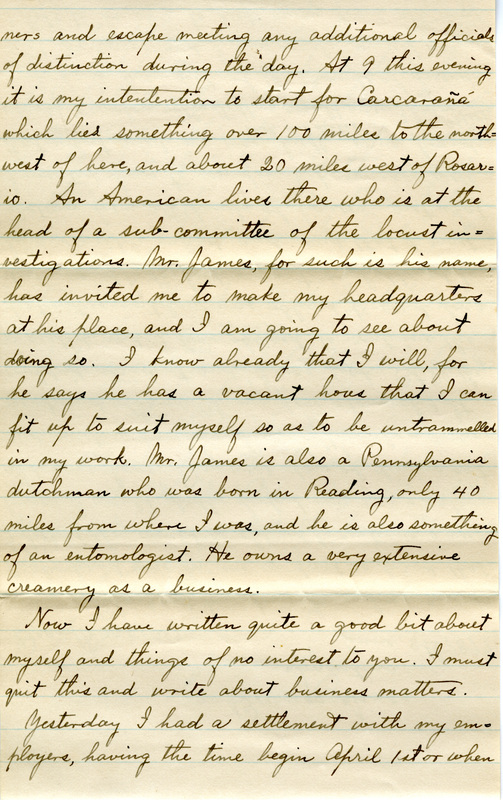 ners and escape meeting any additional officials
of distinction during the day. At 9 this evening
it is my intentention to start for Carcarañá
which lies something over 100 miles to the north=
west of here, and about 20 miles west of Rosar=
io. An American lives there who is at the
head of a sub-committee of the locust in=
vestigations. Mr. James, for such is his name,
has invited me to make my headquarters
at his place, and I am going to see about
doing so. I know already that I will, for
he says he has a vacant hous that I can
fit up to suit myself so as to be untrammelled
in my work. Mr. James is also a Pennsylvania
dutchman who was born in Reading, only 40
miles from where I was, and he is also something
of an entomologist. He owns a very extensive
creamery as a business.
Now I have written quite a good bit about
myself and things of no interest to you. I must
quit this and write about business matters.
Yesterday I had a settlement with my em=
ployers, having the time begin April 1st or when